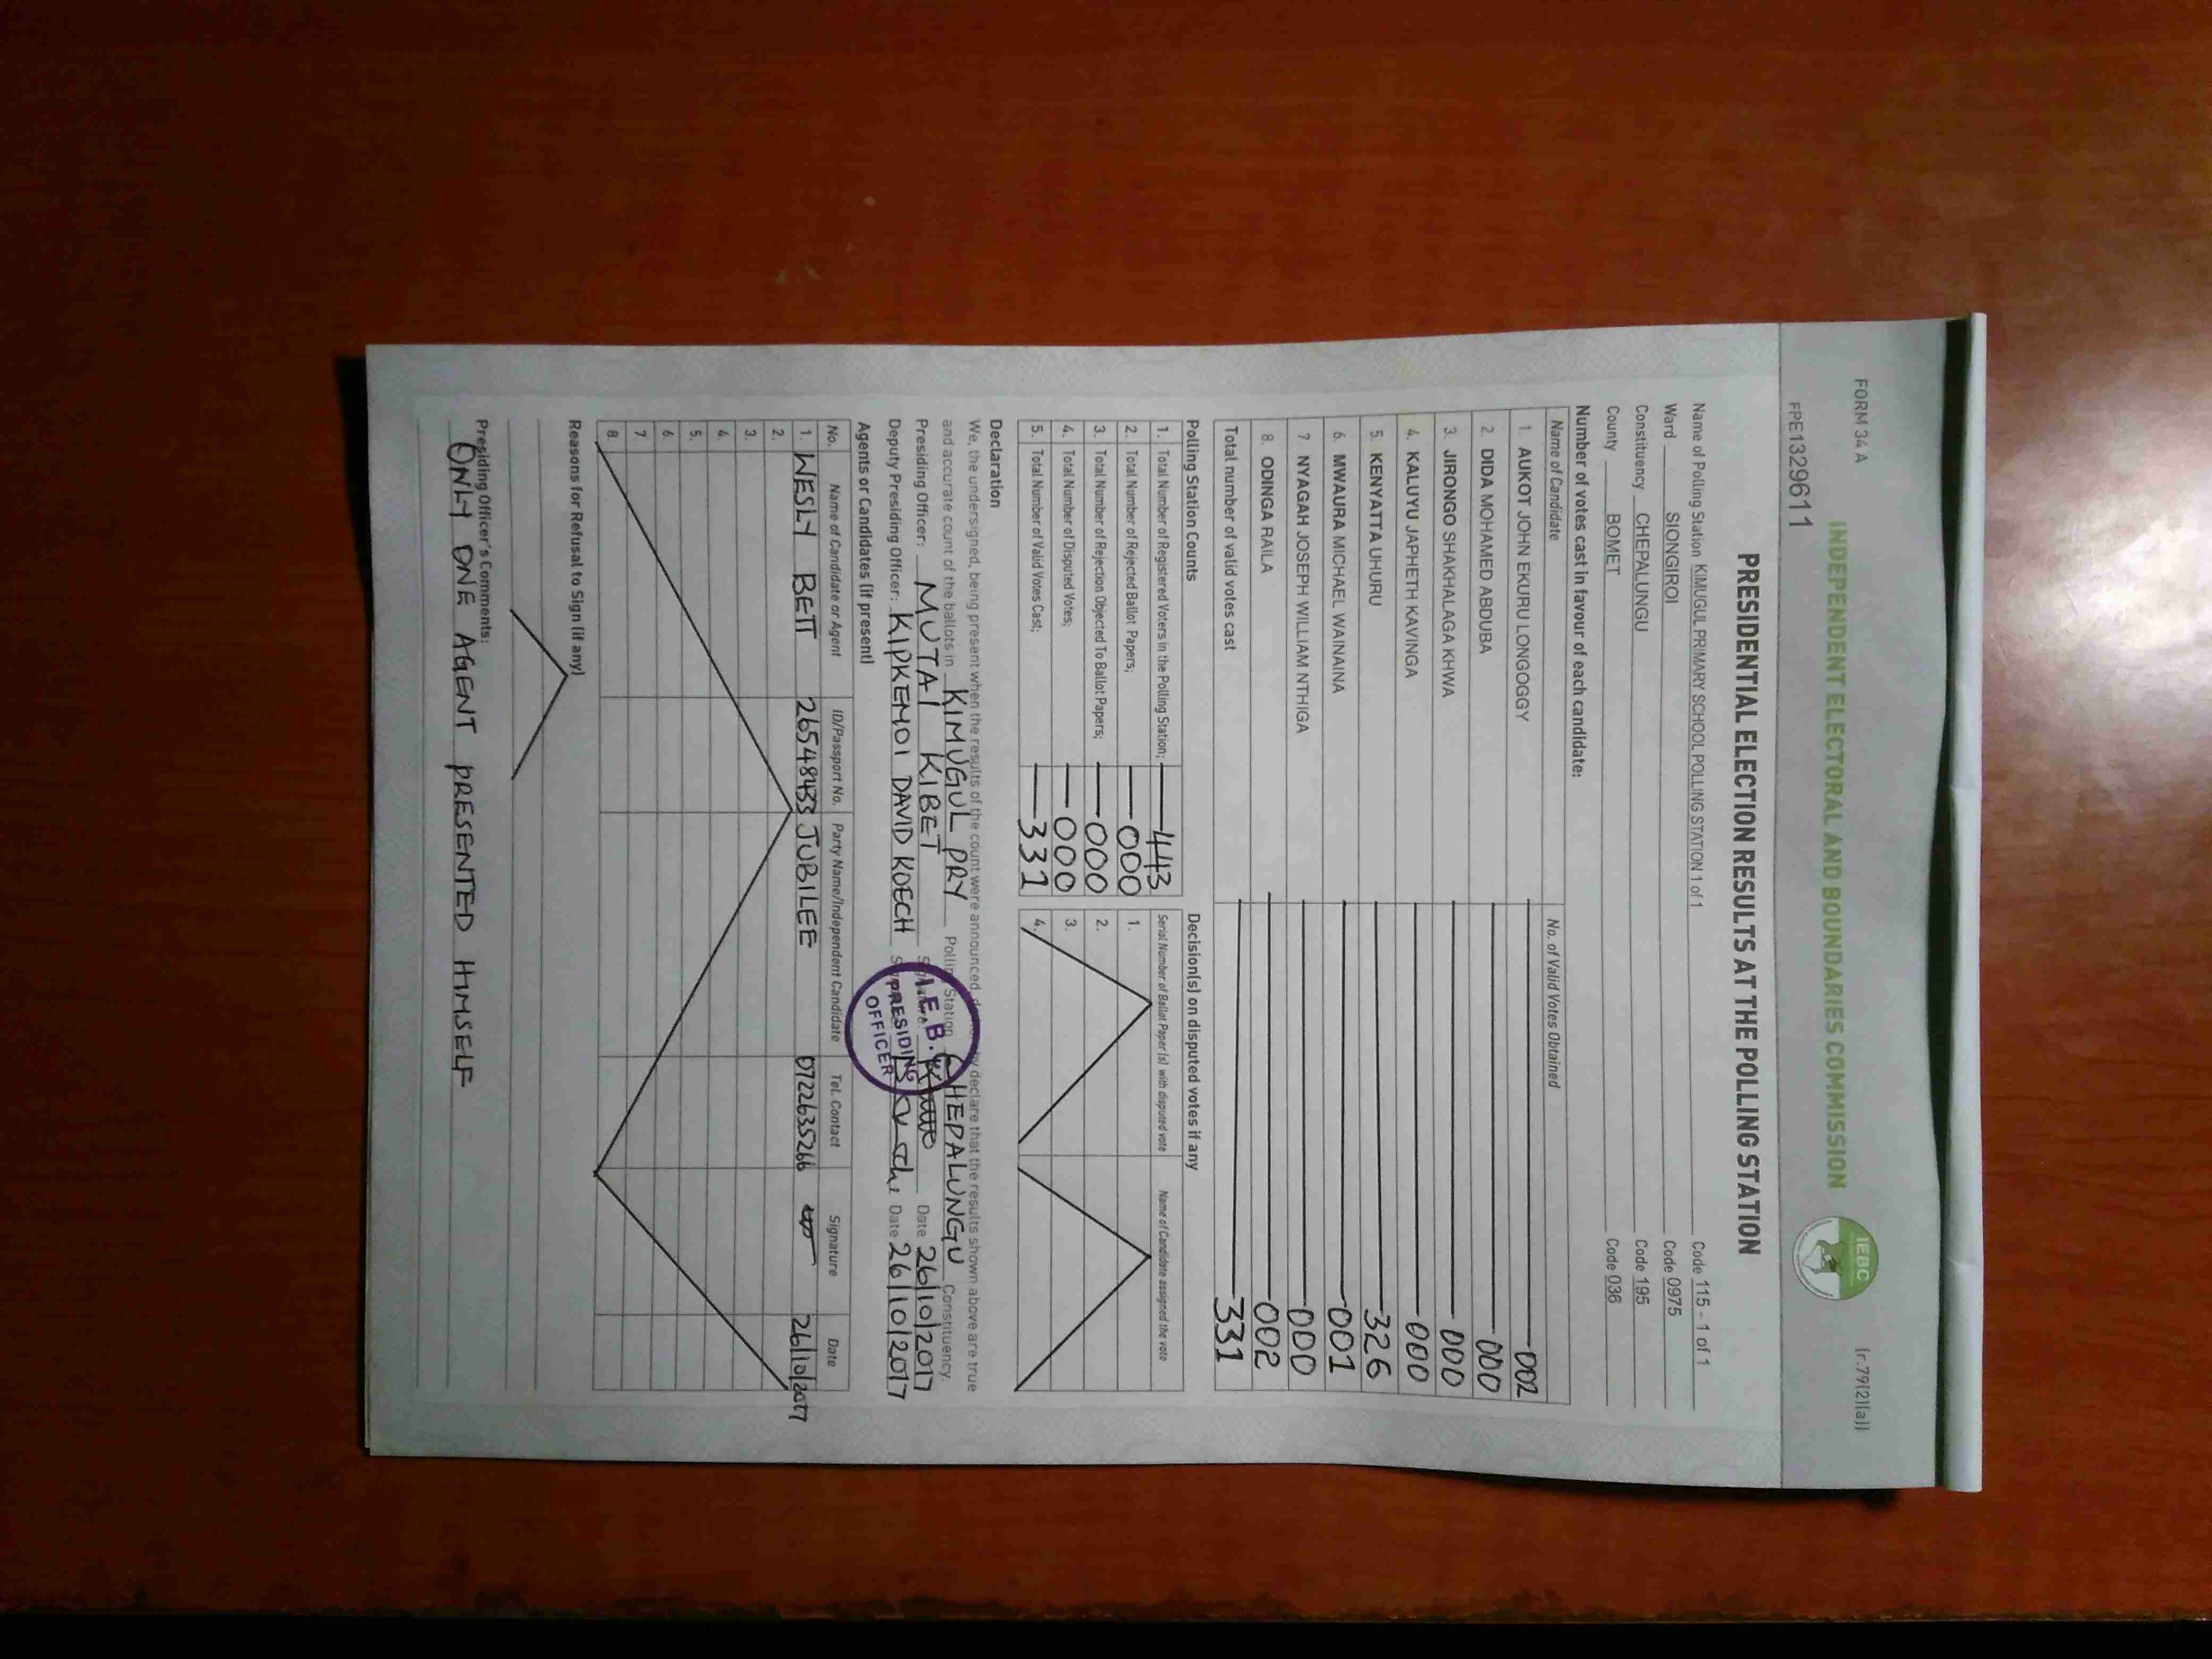 FORM 34 A
(r.79(2)(a))
INDEPENDENT ELECTORAL AND BOUNDARIES COMMISSION
IEBC
FPE1329611
PRESIDENTIAL ELECTION RESULTS AT THE POLLING STATION
Name of Polling Station KIMUGUL PRIMARY SCHOOL POLLING STATION 1 of 1 Code 115 - 1 of 1
Ward SIONGIROI Code 0975
Constituency CHEPALUNGU Code 195
County BOMET Code 036
Number of votes cast in favour of each candidate:
Name of Candidate No. of Valid Votes Obtained
1. AUKOT JOHN EKURU LONGOGGY 002
2. DIDA MOHAMED ABDUBA 000
3. JIRONGO SHAKHALAGA KHWA 000
4. KALUYU JAPHETH KAVINGA 000
5. KENYATTA UHURU 326
6. MWAURA MICHAEL WAINAINA 001
7 NYAGAH JOSEPH WILLIAM NTHIGA 000
8. ODINGA RAILA 002
Total number of valid votes cast 331
Polling Station Counts
1. Total Number of Registered Voters in the Polling Station; 443
2. Total Number of Rejected Ballot Papers; 000
3. Total Number of Rejection Objected To Ballot Papers; 000
4. Total Number of Disputed Votes; 000
5. Total Number of Valid Votes Cast; 331
Decision(s) on disputed votes if any
Serial Number of Ballot Paper (s) with disputed vote Name of Candidate assigned the vote
1.
2.
3.
4.
Declaration
We, the undersigned, being present when the results of the count were announced, do declare that the results shown above are true
and accurate count of the ballots in KIMUGUL PRY Polling Station CHEPALUNGU Constituency.
Presiding Officer: MUTAI KIBET Signature: Date 26/10/2017
Deputy Presiding Officer: KIPKEMOI DAVID KOECH Date 26/10/2017
I.E.B.C
PRESIDING
OFFICER
Agents or Candidates (if present)
No. Name of Candidate or Agent ID/Passport No. Party Name/Independent Candidate Tel. Contact Signature Date
1. WESLY BETT 26548433 JUBILEE 0722635266 26/10/2017
2.
3.
4.
5.
6.
7.
8.
Reasons for Refusal to Sign (if any)
Presiding Officer's Comments:
ONLY ONE AGENT PRESENTED HIMSELF